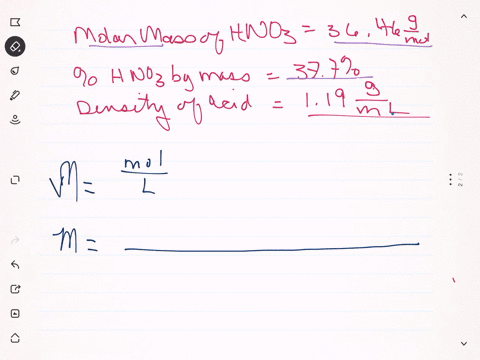 Molar Mass of HNO3 = 36.46 g/mol
% HNO3 by mass = 37.7%
Density of acid = 1.19 g/mL
M = mol/L
m =
2 / 2